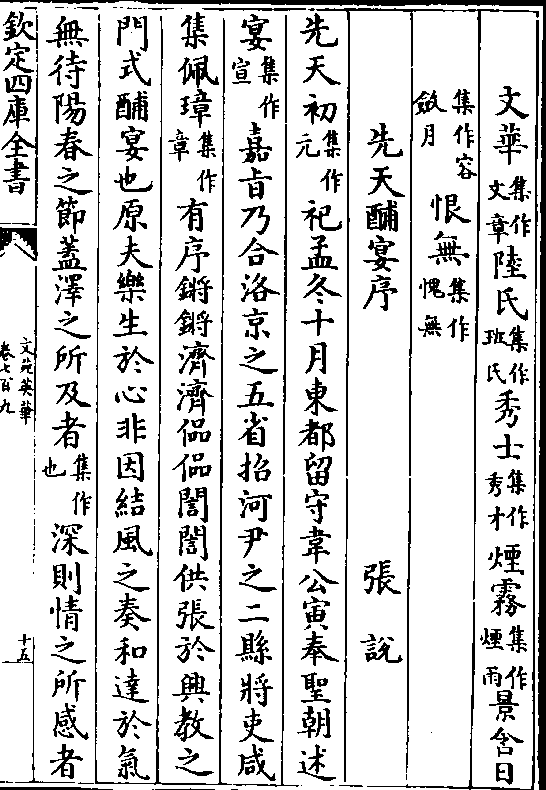 文華集作文章陸氏集作班氏秀士集作秀才煙霧集作煙雨景含日
集作容斂月恨無集作愧無
先天酺宴序
張說
先天初集作元祀孟冬十月東都留守韋公寅奉聖朝述
宴集作宣嘉㫖乃合洛京之五省招河尹之二縣將吏咸
集佩璋集作章有序鏘鏘濟濟偘偘誾誾供張於興教之
門式酺宴也原夫樂生於心非因結風之奏和達於氣
無待陽春之節蓋澤之所及者集作也深則情之所感者
欽定四庫全書
文苑英華
卷七百九
十五